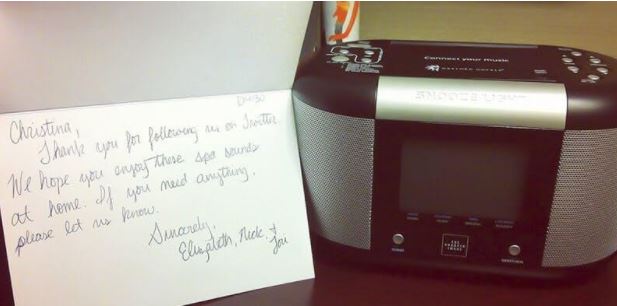 Christina,
Thank you for following us on Twitter.
We hope you enjoy these spa sounds
at home. If you need anything,
please let us know.
Sincerely,
Elizabeth, Nick, & Lori
Connect your music
SNOOZE
THE
SHARPER
IMAGE